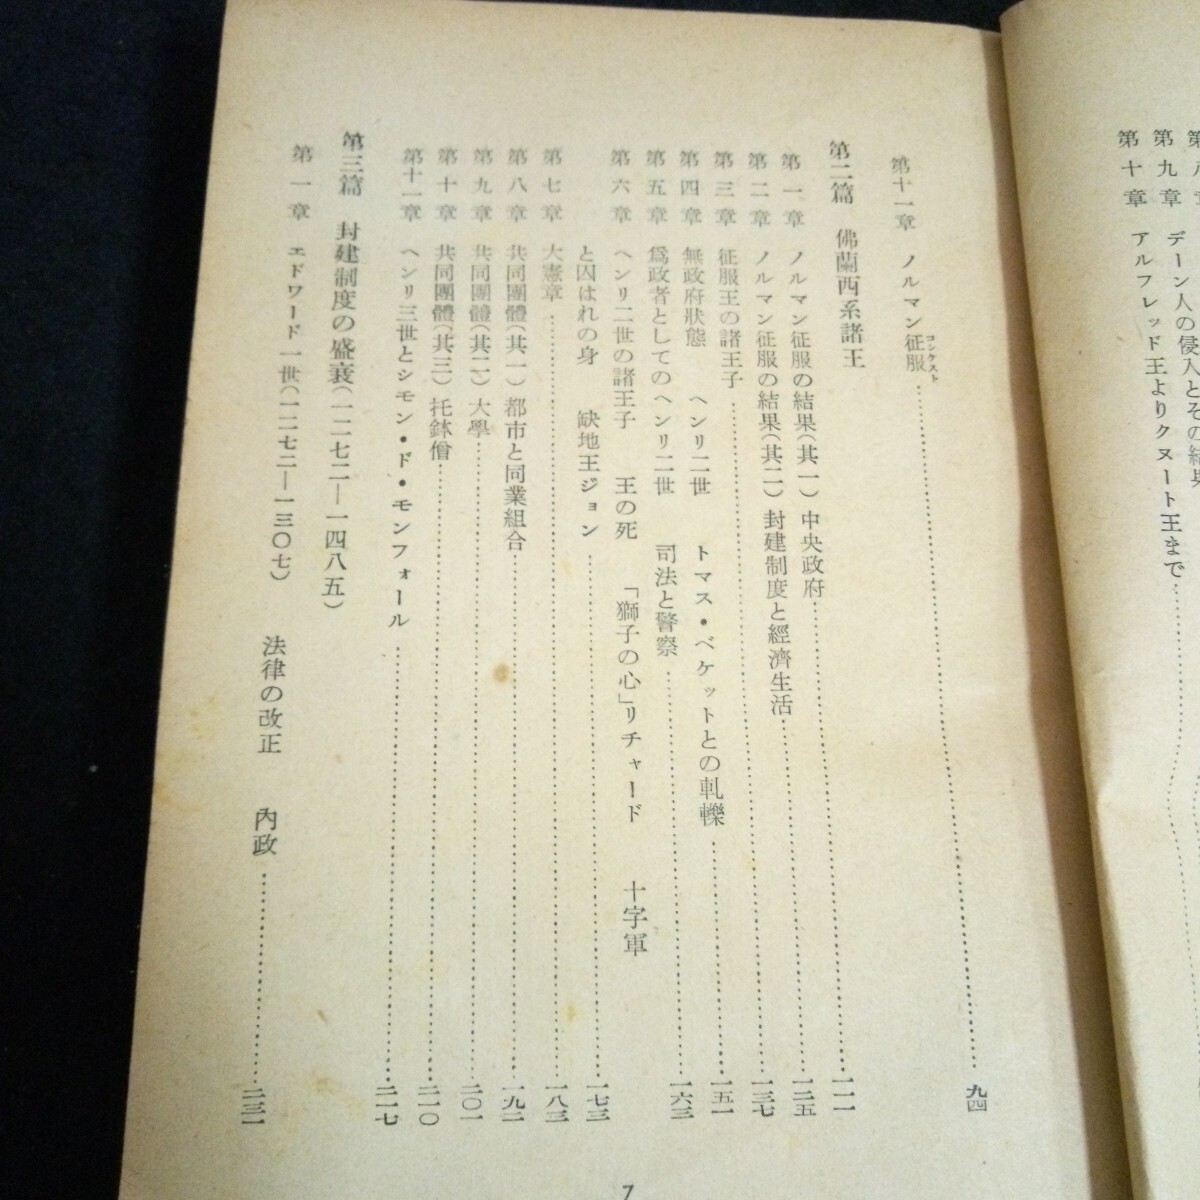 第九章 デーン人の侵入とその結果
第十章 アルフレッド王よりクヌート王まで
第十一章 ノルマン征服
コンケスト
九四
第二篇 佛蘭西系諸王
第一章 ノルマン征服の結果(其一) 中央政府 一一一
第二章 ノルマン征服の結果(其二) 封建制度と經濟生活 一二五
第三章 征服王の諸王子 一三七
第四章 無政府狀態 ヘンリ二世 トマス・ベケットとの軋轢 一五一
第五章 爲政者としてのヘンリ二世 司法と警察 一六三
第六章 ヘンリ二世の諸王子 王の死 「獅子の心」リチャード 十字軍
と囚はれの身 缺地王ジョン 一七三
第七章 大憲章 一八三
第八章 共同團體(其一) 都市と同業組合 一九二
第九章 共同團體(其二) 大學 二〇一
第十章 共同團體(其三) 托鉢僧 二一〇
第十一章 ヘンリ三世とシモン・ド・モンフォール 二一七
第三篇 封建制度の盛衰(一二七二―一四八五)
第一章 エドワード一世(一二七二―一三〇七) 法律の改正 內政 二三一
7